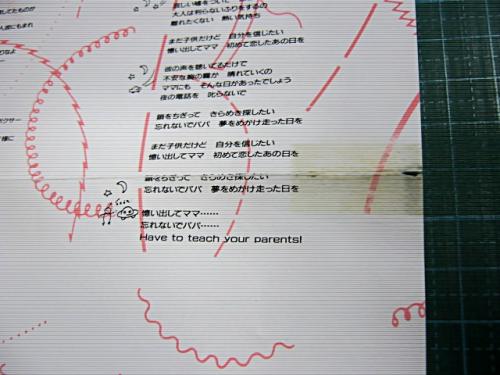 大人は判らないふりをするの
離れたくない 熱い気持ち
まだ子供だけど 自分を信したい
憶い出してママ 初めて恋したあの日を
彼の声を聴いてるだけで
不安な胸の霧が 晴れていくの
ママにも そんな日があったでしょう
夜の電話を 叱らないで
鎖をちぎって きらめき探したい
忘れないでパパ 夢をめがけ走った日を
まだ子供だけど 自分を信したい
憶い出してママ 初めて恋したあの日を
鎖をちぎって きらめき探したい
忘れないでパパ 夢をめがけ走った日を
憶い出してママ……
忘れないでパパ……
Have to teach your parents!